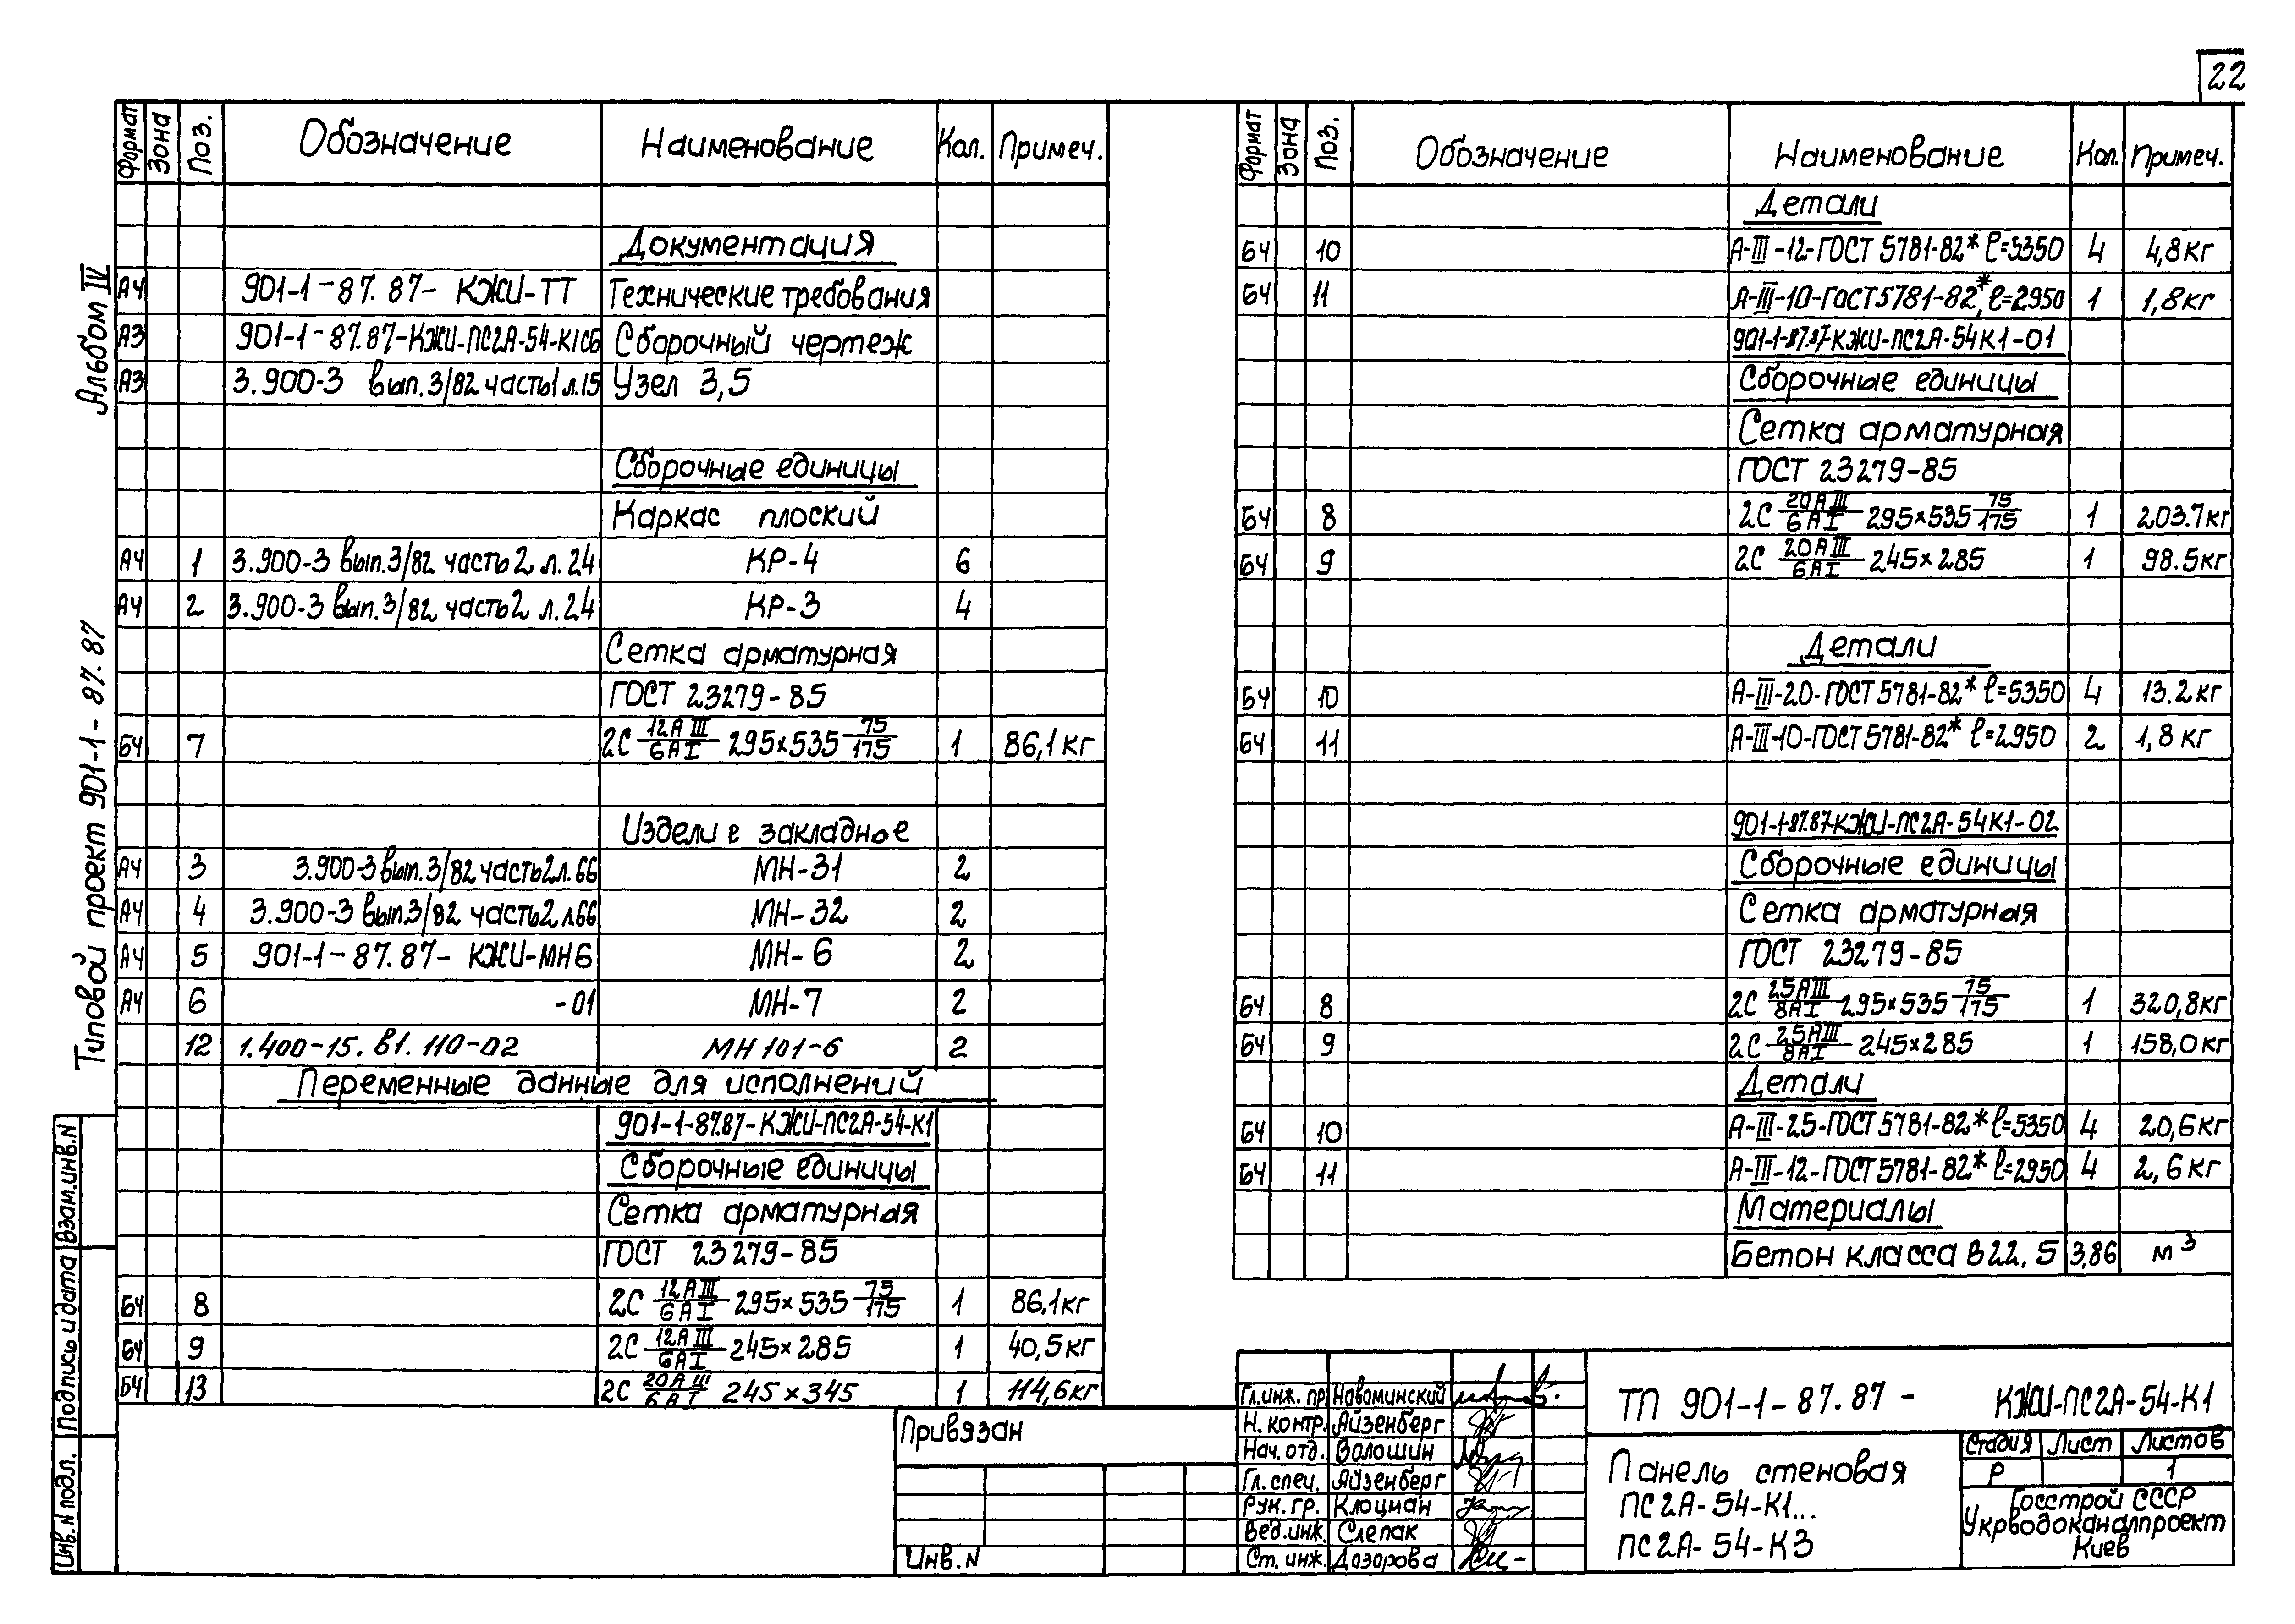 22
Формат Зона Поз. Обозначение Наименование Кол. Примеч.
Документация
А4 901-1-87.87- КЖИ-ТТ Технические требования
А3 901-1-87.87-КЖИ-ПС2А-54-К1СБ Сборочный чертеж
А3 3.900-3 вып.3/82 часть1 л.15 Узел 3,5
Сборочные единицы
Каркас плоский
А4 1 3.900-3 вып.3/82 часть 2 л.24 КР-4 6
А4 2 3.900-3 вып.3/82 часть2 л.24 КР-3 4
Сетка арматурная
ГОСТ 23279-85
БЧ 7 2С 12АIII/6АI 295×535 75/175 1 86,1кг
Изделие закладное
А4 3 3.900-3 вып.3/82 часть2л.66 МН-31 2
А4 4 3.900-3 вып.3/82 часть2 л.66 МН-32 2
А4 5 901-1-87.87- КЖИ-МН6 МН-6 2
А4 6 -01 МН-7 2
12 1.400-15. В1. 110-02 МН 101-6 2
Переменные данные для исполнений
901-1-87.87-КЖИ-ПС2А-54-К1
Сборочные единицы
Сетка арматурная
ГОСТ 23279-85
БЧ 8 2С 12АIII/6АI 295×535 75/175 1 86,1кг
БЧ 9 2С 12АIII/6АI 245×285 1 40,5кг
БЧ 13 2С 20АIII/6АI 245×345 1 114,6кг
Формат Зона Поз. Обозначение Наименование Кол. Примеч.
Детали
БЧ 10 А-III-12-ГОСТ 5781-82* ℓ=5350 4 4,8кг
БЧ 11 А-III-10-ГОСТ5781-82*, ℓ=2950 1 1,8кг
901-1-87.87-КЖИ-ПС2А-54К1-01
Сборочные единицы
Сетка арматурная
ГОСТ 23279-85
БЧ 8 2С 20АIII/6АI 295×535 75/175 1 203.7кг
БЧ 9 2С 20АIII/6АI 245×285 1 98.5кг
Детали
БЧ 10 А-III-20-ГОСТ5781-82* ℓ=5350 4 13.2кг
БЧ 11 А-III-10-ГОСТ5781-82* ℓ=2950 2 1,8кг
901-1-87.87-КЖИ-ПС2А-54К1-02
Сборочные единицы
Сетка арматурная
ГОСТ 23279-85
БЧ 8 2С 25АIII/8АI 295×535 75/175 1 320,8кг
БЧ 9 2С 25АIII/8АI 245×285 1 158,0кг
Детали
БЧ 10 А-III-25-ГОСТ5781-82* ℓ=5350 4 20,6кг
БЧ 11 А-III-12-ГОСТ5781-82* ℓ=2950 4 2,6кг
Материалы
Бетон класса В22,5 3,86 м³
Альбом IV
Типовой проект 901-1-87.87
Взам.инв.N
Подпись и дата
Инв.N подл.
Привязан
Инв.N
Гл.инж.пр. Новоминский
Н.контр. Айзенберг
Нач.отд. Волошин
Гл.спец. Айзенберг
Рук.гр. Клоцман
Вед.инж. Слепак
Ст.инж. Дозорова
ТП 901-1-87.87- КЖИ-ПС2А-54-К1
Панель стеновая
ПС2А-54-К1...
ПС2А-54-К3
Стадия Лист Листов
Р 1
Госстрой СССР
Укрводоканалпроект
Киев